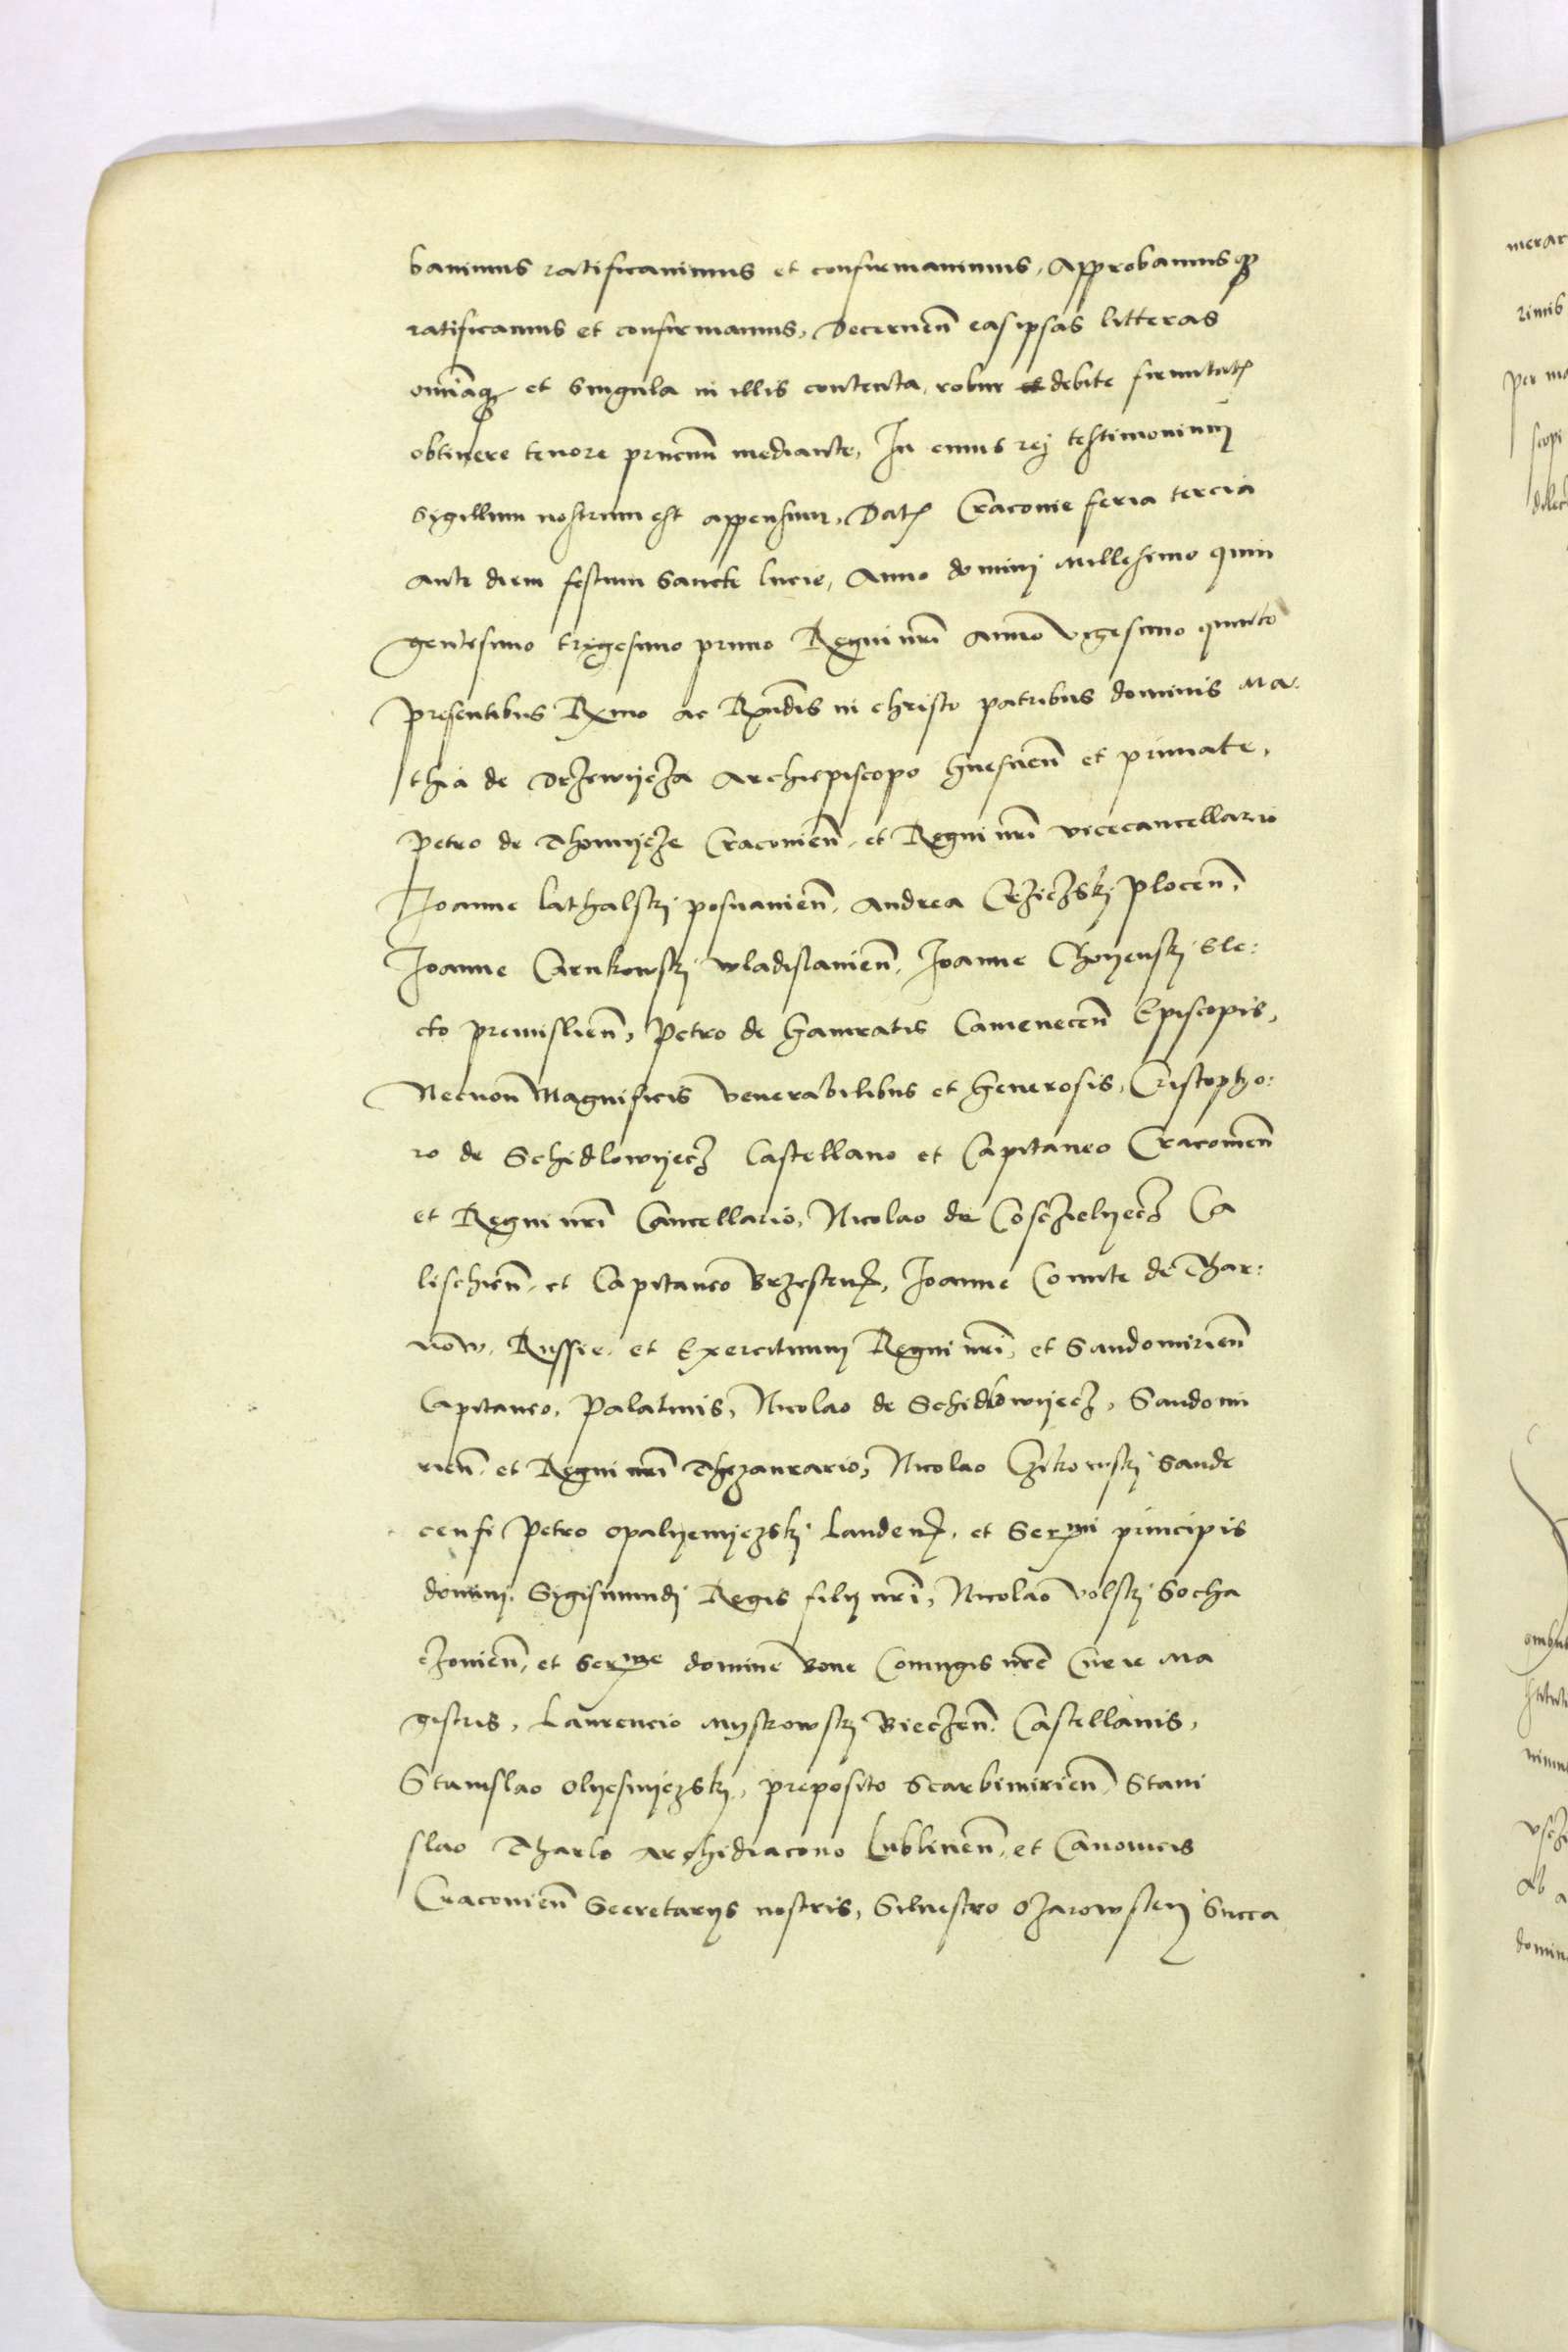 bauimus ratificauimus et confirmauimus, Approbamusq3
ratificamus et confirmamus, Decernen̄ eas ipsas litteras
omīaq3 et singula in illis contenta, robur debite firmitat
obtinere tenore pn̄cium mediante, In cuius rej testimonium
sygillum nostrum est appensum, Dat Cracouie feria tercia
ante diem festum Sancte lucie, Anno dominj Millesimo quin
gentesimo trigesimo primo Regni nr̄i Anno vigesimo quinto
presentibus Rxmo ac Rxn̄dis in christo patribus dominis Ma:
thia de Drzewijcza Archiepiscopo Gnesnen̄ et primate,
Petro de Thomijcze Cracouien̄, et Regni nr̄i vicecancellario
Joanne lathalskj posnanien̄, Andrea Crziczskj Plocen̄,
Joanne Carnkowskj wladislauien̄, Joanne Choyenskj Ele:
cto premislien̄, Petro de Gamratis Camenecen̄ Episcopis,
Necnon Magnificis venerabilibus et Generosis, Cristopho:
ro de Schidlowyecz Castellano et Capitaneo Cracouien̄
et Regni nr̄i Cancellario, Nicolao de Cosczielyecz Ca
lischien̄, et Capitaneo Brzesten, Joanne Comite de Thar:
now, Russie, et Exercituum Regni nr̄i, et Sandomirien̄
Capitaneo, Palatinis, Nicolao de Schidlowyecz, Sandomi
rien̄, et Regni nr̄i Thezaurario, Nicolao Czikowskj Sande
censi Petro Opalyenyczskj Landen, et Serᵐⁱ principis
dominj, Sygismundj Regis filij nr̄i, Nicolao Volskj Socha
czouien̄, et Serᵐᵉ domine Bone Coniugis nr̄e Curie Ma
gistris, Laurencio Myskowskj Bieczen̄ Castellanis,
Stanislao Olyesnyczskj, preposito Scarbimirien̄, Stani
slao Tharlo Archidiacono Lublinen̄, et Canonicis
Cracouien̄ Secretarijs nostris, Siluestro Ozarowskj Succa
merar
rimis
per ma
scopi
dilec
nimu
Ab a
domin